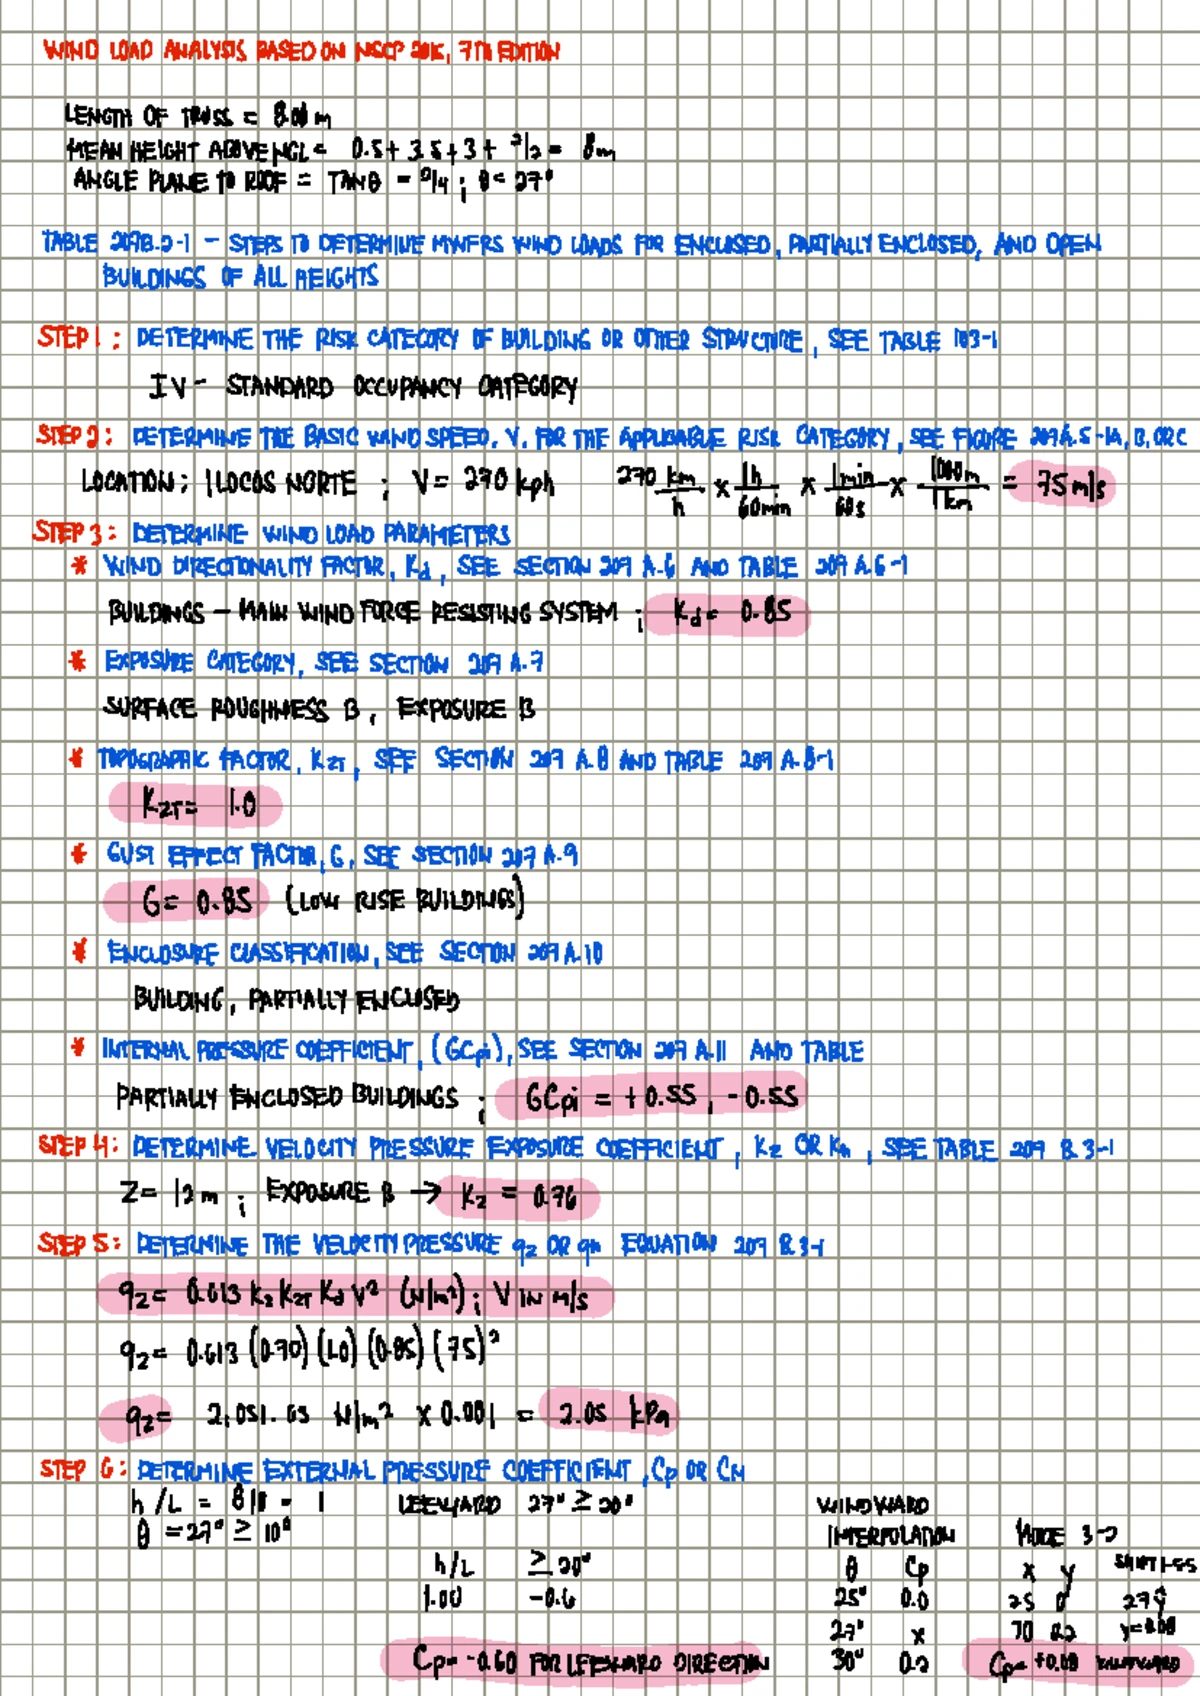 WIND LOAD ANALYSIS BASED ON NSCP 2015, 7TH EDITION
LENGTH OF TRUSS = 8.00 m
MEAN HEIGHT ABOVE NGL = 0.5 + 3.5 + 3 + 2/2 = 8m
ANGLE PLANE TO ROOF = TAN θ = 2/4 ; θ = 27°
TABLE 207B.2-1 - STEPS TO DETERMINE MWFRS WIND LOADS FOR ENCLOSED, PARTIALLY ENCLOSED, AND OPEN
BUILDINGS OF ALL HEIGHTS
STEP 1 : DETERMINE THE RISK CATEGORY OF BUILDING OR OTHER STRUCTURE, SEE TABLE 103-1
IV - STANDARD OCCUPANCY CATEGORY
STEP 2 : DETERMINE THE BASIC WIND SPEED, V, FOR THE APPLICABLE RISK CATEGORY, SEE FIGURE 207A.5-1A, B, OR C
LOCATION ; ILOCOS NORTE ; V = 270 kph 270 km/h x 1h/60min x 1min/60s x 1000m/1km = 75 m/s
STEP 3 : DETERMINE WIND LOAD PARAMETERS
* WIND DIRECTIONALITY FACTOR, Kd, SEE SECTION 207 A.6 AND TABLE 207 A.6-1
BUILDINGS - MAIN WIND FORCE RESISTING SYSTEM ; Kd = 0.85
* EXPOSURE CATEGORY, SEE SECTION 207 A.7
SURFACE ROUGHNESS B, EXPOSURE B
* TOPOGRAPHIC FACTOR, KZT, SEE SECTION 207 A.8 AND TABLE 207 A.8-1
KZT = 1.0
* GUST EFFECT FACTOR, G, SEE SECTION 207 A.9
G = 0.85 (LOW RISE BUILDINGS)
* ENCLOSURE CLASSIFICATION, SEE SECTION 207 A.10
BUILDING, PARTIALLY ENCLOSED
* INTERNAL PRESSURE COEFFICIENT, (GCpi), SEE SECTION 207 A.11 AND TABLE
PARTIALLY ENCLOSED BUILDINGS ; GCpi = +0.55, -0.55
STEP 4 : DETERMINE VELOCITY PRESSURE EXPOSURE COEFFICIENT, Kz OR Kh, SEE TABLE 207 B.3-1
Z = 12 m ; EXPOSURE B → Kz = 0.76
STEP 5 : DETERMINE THE VELOCITY PRESSURE qz OR qh EQUATION 207 B.3-1
qz = 0.613 Kz KZT Kd V² (N/m²) ; V IN m/s
qz = 0.613 (0.70) (1.0) (0.85) (75)²
qz = 2,051.63 N/m² x 0.001 = 2.05 kPa
STEP 6 : DETERMINE EXTERNAL PRESSURE COEFFICIENT, Cp OR CN
h/L = 8/8 = 1 LEEWARD 27° ≥ 20° WINDWARD
θ = 27° ≥ 10° INTERPOLATION MODE 3-2
h/L ≥ 20° θ Cp x y SHIFT
1.00 -0.6 25° 0.0 25 0 27ŷ
27° x 30 0.2 y = 0.08
Cp = -0.60 FOR LEEWARD DIRECTION 30° 0.2 Cp = +0.08 WINDWARD